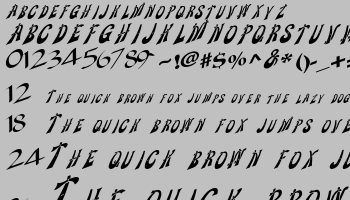 ABCDEFGHIJKLMNOPQRSTUVWXYZ
ABCDEFGHIJKLMNOPQRSTUVW
0123456789 ~!@#$%^&*()-_+
12 THE QUICK BROWN FOX JUMPS OVER THE LAZY DOG
18 THE QUICK BROWN FOX JUMPS OVE
24 THE QUICK BROWN FOX JU
THE QUICK BROWN